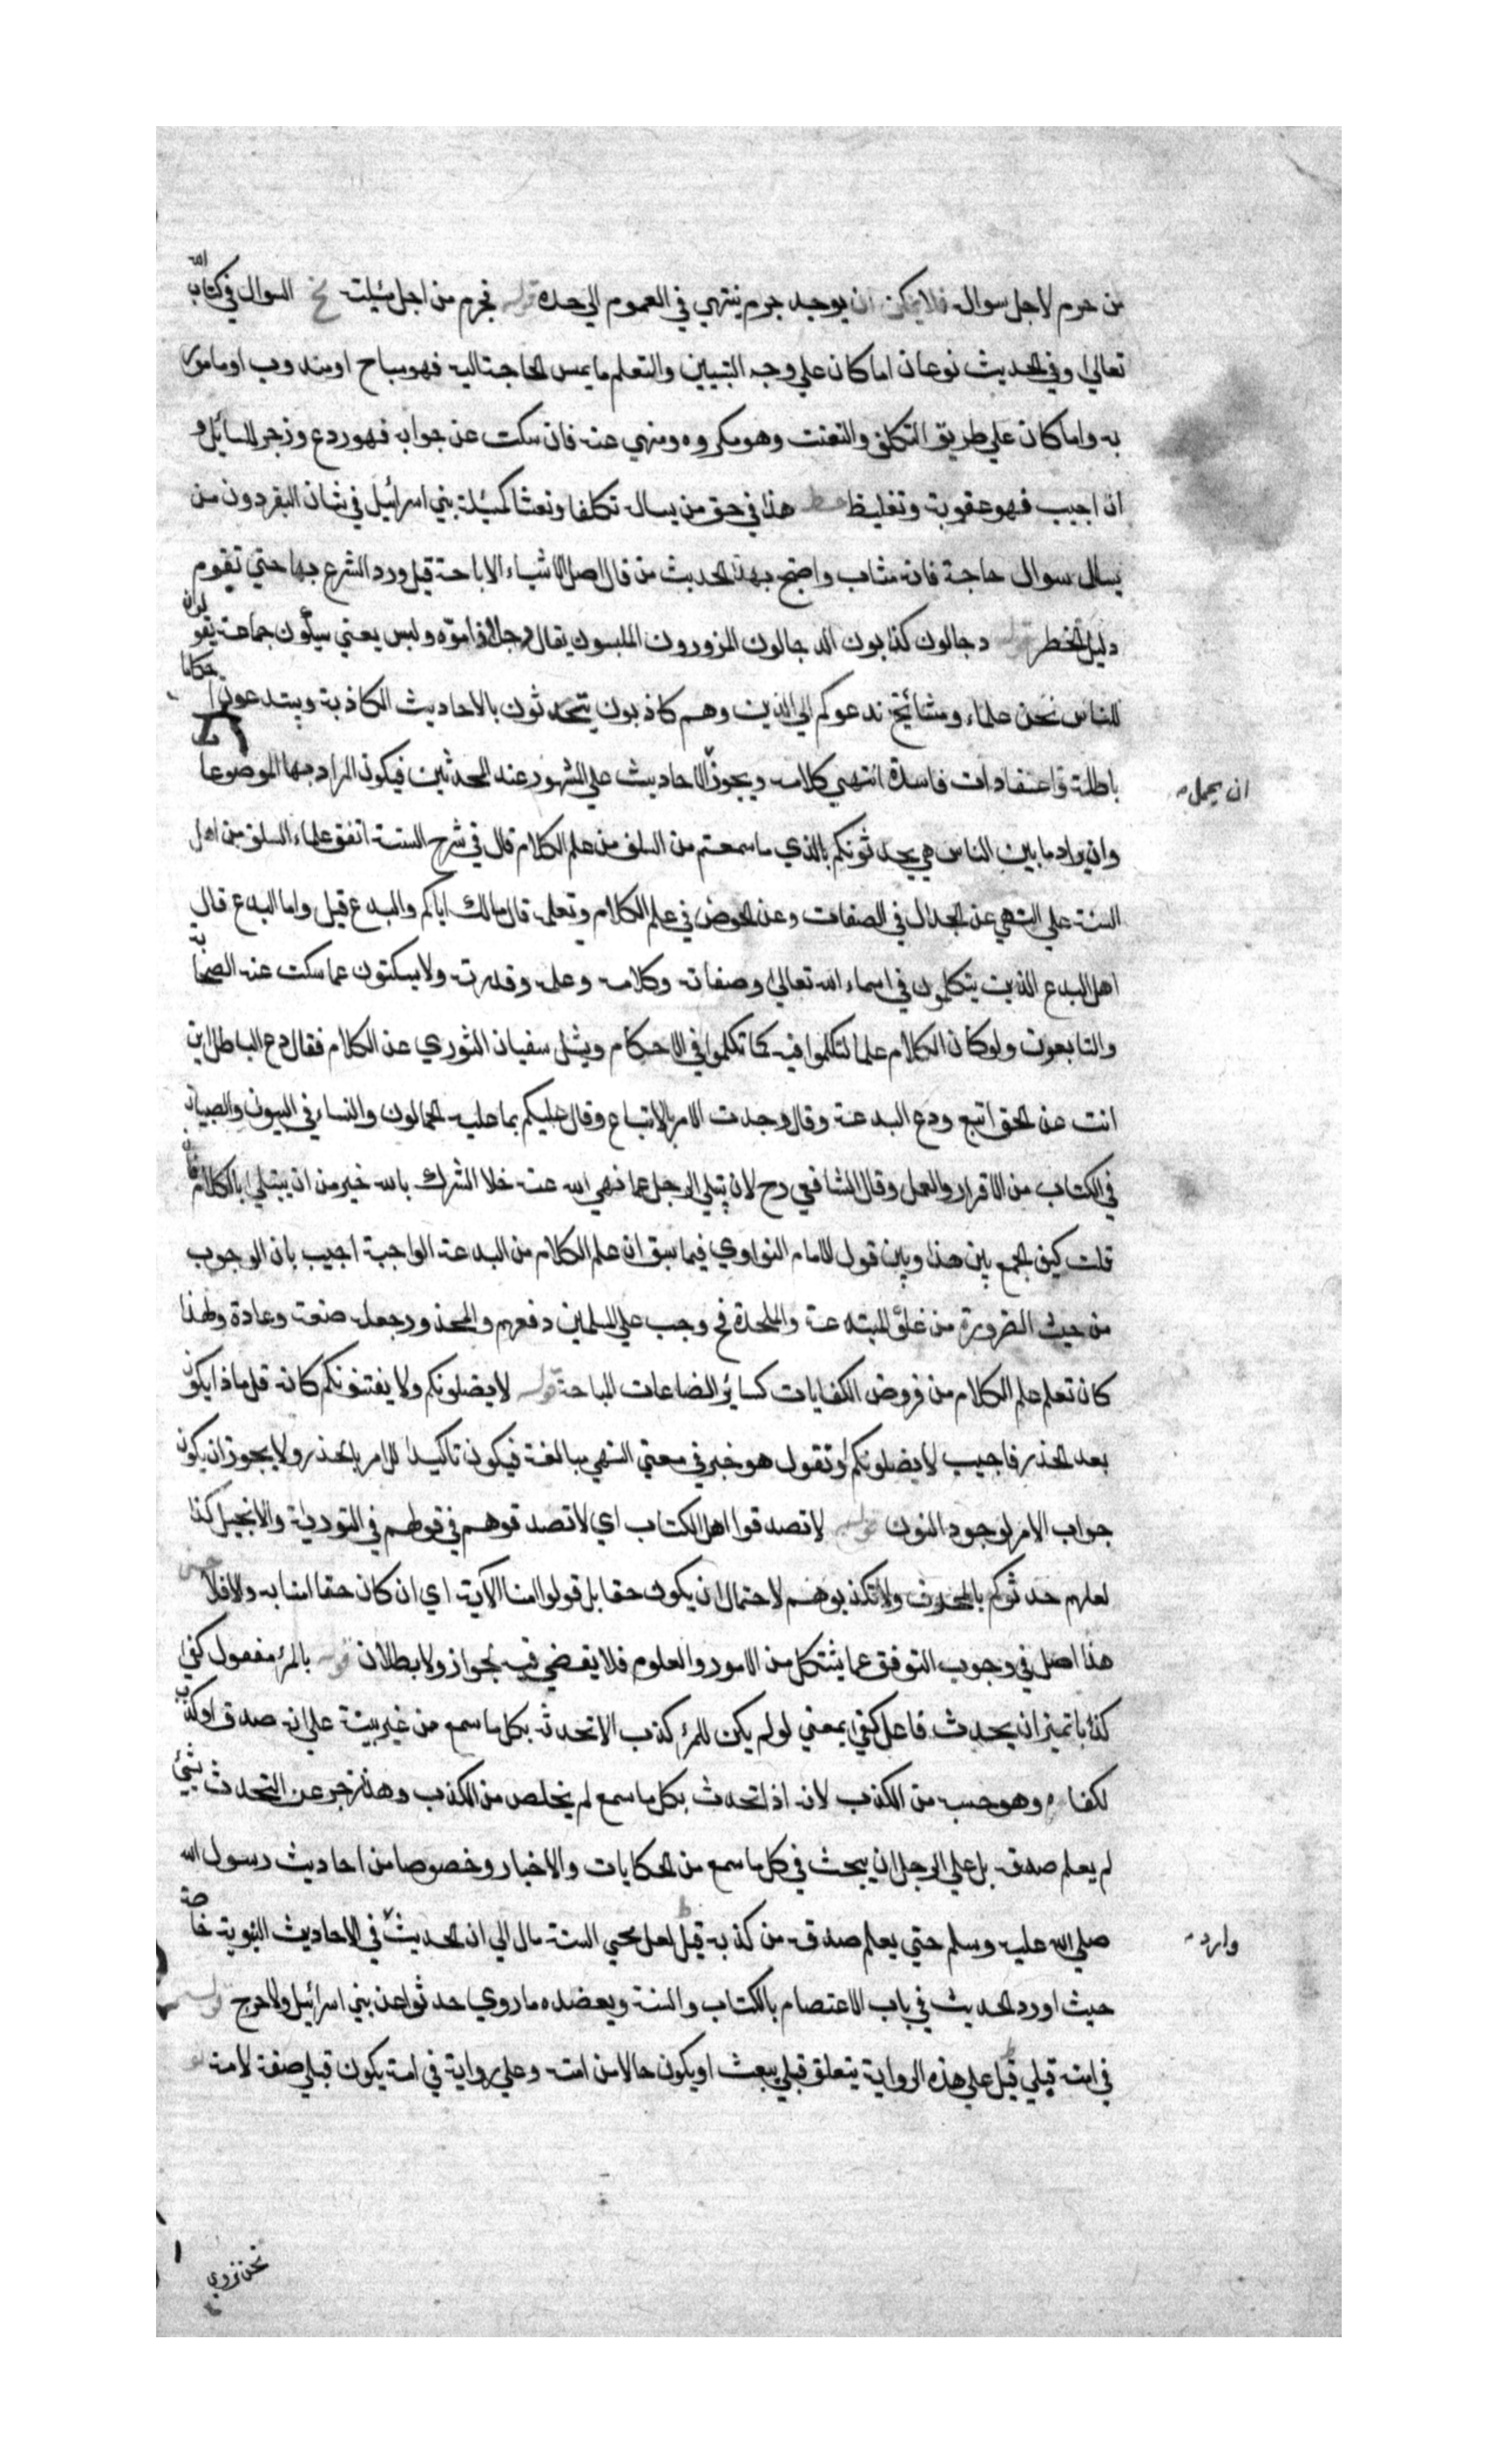 من حرم لاجل سوال فلا يمكن ان يوجد جرم ينتهي في العموم الي حده قوله فحرم من اجل مسئلته السوال في كتاب الله
تعالي وفي الحديث نوعان اما كان علي وجه التبيين والتعلم ما يمس الحاجة اليه فهو مباح او مندوب او مامور
به واما كان علي طريق التكلف والتعنت وهو مكروه ومنهي عنه فان سكت عن جوابه فهو ردع وزجر للسائل و
ان اجيب فهو عقوبة وتغليظ خط هذا في حق من يسال تكلفا وتعنتا كمسئلة بني اسرائيل في شان البقر دون من
يسال سوال حاجة فانه مثاب واحتج بهذا الحديث من قال اصل الاشياء الاباحة قبل ورد الشرع بها حتي تقوم
دليل الحظر قوله دجالون كذابون الدجالون المزورون الملبسون يقال دجل اذا موّه ولبس يعني سيأون جماعة يقولون
للناس نحن علماء ومشائخ ندعوكم الي الدين وهم كاذبون يتحدثون بالاحاديث الكاذبة ويبتدعون احكاما
باطلة واعتقادات فاسدة انتهي كلامه ويجوز الاحاديث علي المشهور عند المحدثين فيكون المراد بها الموضوعات
ان يحمل
وان يراد ما بين الناس هي يحدثونكم بالذي ما سمعتم من السلف من علم الكلام قال في شرح السنة اتفق علماء السلف من اهل
السنة علي النهي عن الجدال في الصفات وعن الخوض في علم الكلام وتعلمه قال مالك اياكم والبدع قيل واما البدع قال
اهل البدع الذين يتكلمون في اسماء الله تعالي وصفاته وكلامه وعلمه وقدرته ولا يسكتون عما سكت عنه الصحابة
والتابعون ولو كان الكلام علما لتكلموا فيه كما تكلموا في الاحكام وسئل سفيان الثوري عن الكلام فقال دع الباطل اين
انت عن الحق اتبع ودع البدعة وقال وجدت الامر بالاتباع وقال عليكم بما عليه الحمالون والنساء في البيوت والصبيان
في الكتاب من الاقرار والعمل وقال الشافعي رح لان يبتلي الرجل بما نهي الله عنه خلا الشرك بالله خير من ان يبتلي بالكلام فان
قلت كيف الجمع بين هذا وبين قول الامام النواوي فيما سبق ان علم الكلام من البدعة الواجبة اجيب بان الوجوب
من حيث الضرورة من غلو المبتدعة والملحدة فح وجب علي المسلمين دفعهم والمحذور جعله صنعة وعادة ولهذا
كان تعلم علم الكلام من فروض الكفايات كسائر الصناعات المباحة قوله لا يضلونكم ولا يفتنونكم كانه قيل ماذا يكون
بعد الحذر فاجيب لا يضلونكم او تقول هو خبر في معني النهي مبالغة فيكون تاكيدا للامر بالحذر ولا يجوز ان يكون
جواب الامر لوجود النون قوله لا تصدقوا اهل الكتاب اي لا تصدقوهم في قولهم في التورية والانجيل كذا
لعلهم حدثوكم بالمحرف ولا تكذبوهم لاحتمال ان يكون حقا بل قولوا امنا الآية اي ان كان حقا امنا به والا فلا حسن
هذا اصل في وجوب التوقف عما يشتكل من الامور والعلوم فلا يقضي فيه بجواز ولا بطلان قوله بالمرء مفعول كفي
كذبا تميز ان يحدث فاعل كفي يعني لو لم يكن للمرء كذب الا تحدثه بكل ما سمع من غير بينة علي انه صدق او كذب
لكفاه وهو حسبه من الكذب لانه اذا تحدث بكل ما سمع لم يخلص من الكذب وهذا زجر عن التحدث بشئ
لم يعلم صدقه بل علي الرجل ان يبحث في كل ما سمع من الحكايات والاخبار وخصوصا من احاديث رسول الله
صلي الله عليه وسلم حتي يعلم صدقه من كذبه قيل لعل محيي السنة مال الي ان الحديث في الاحاديث النبوية خاصة
وارد
حيث اورد الحديث في باب الاعتصام بالكتاب والسنة ويعضده ما روي حدثوا عن بني اسرائيل ولا حرج قوله
في امته قبلي قيل علي هذه الرواية يتعلق قبلي ببعث او يكون حالا من امته وعلي رواية في امة يكون قبلي صفة لامة
نحن نروي